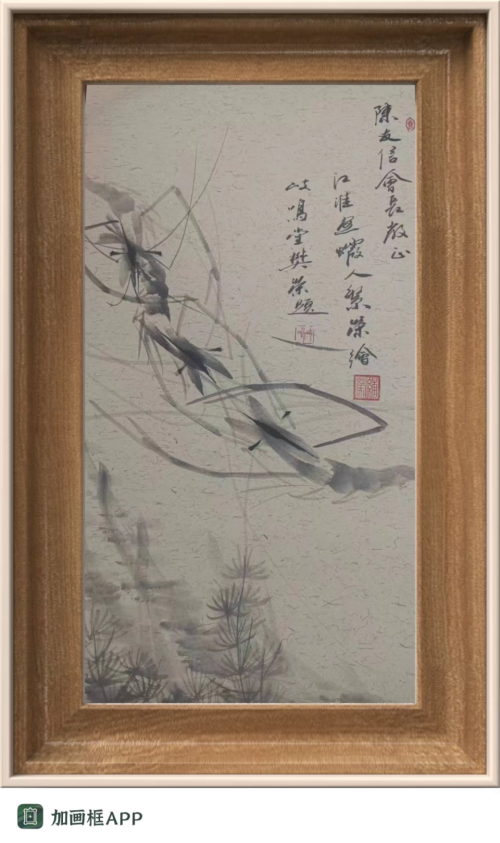 陳友信會長教正
江淮魚蝦人樊榮繪
岐鳴堂樊榮題
加画框APP